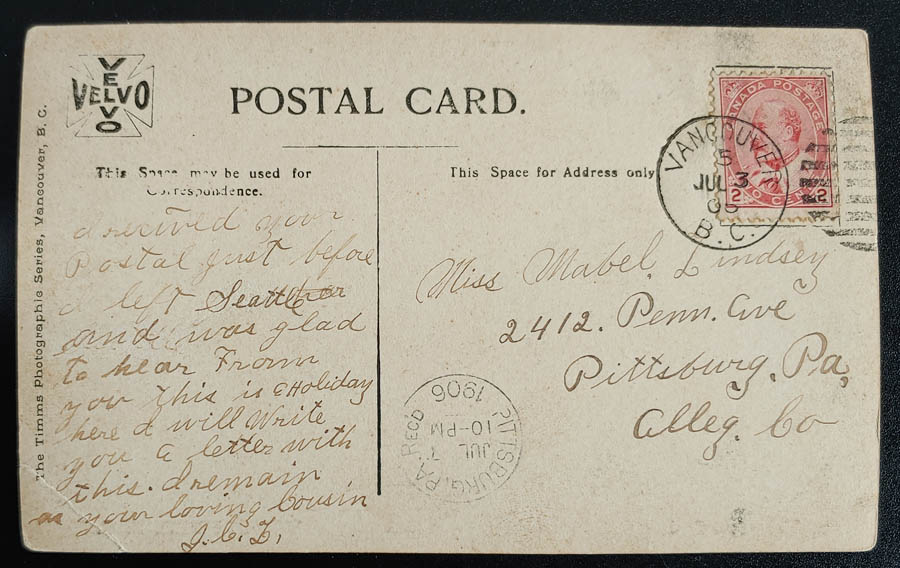 VELVO
VELVO
POSTAL CARD.
The Timms Photographic Series, Vancouver, B. C.
This Space may be used for
Correspondence.
This Space for Address only
CANADA POSTAGE
2 CENTS 2
VANCOUVER
5
JUL 3
B.C.
I recived your
Postal just before
I left Seattle
and was glad
to hear From
you this is a Holiday
here I will Write
you a letter with
this. I remain
as your loving Cousin
Miss Mabel Lindsey
2412. Penn. Ave
Pittsburg, Pa,
Alleg. Co
PITTSBURG, PA. REC'D
JUL 7
10-PM
1906